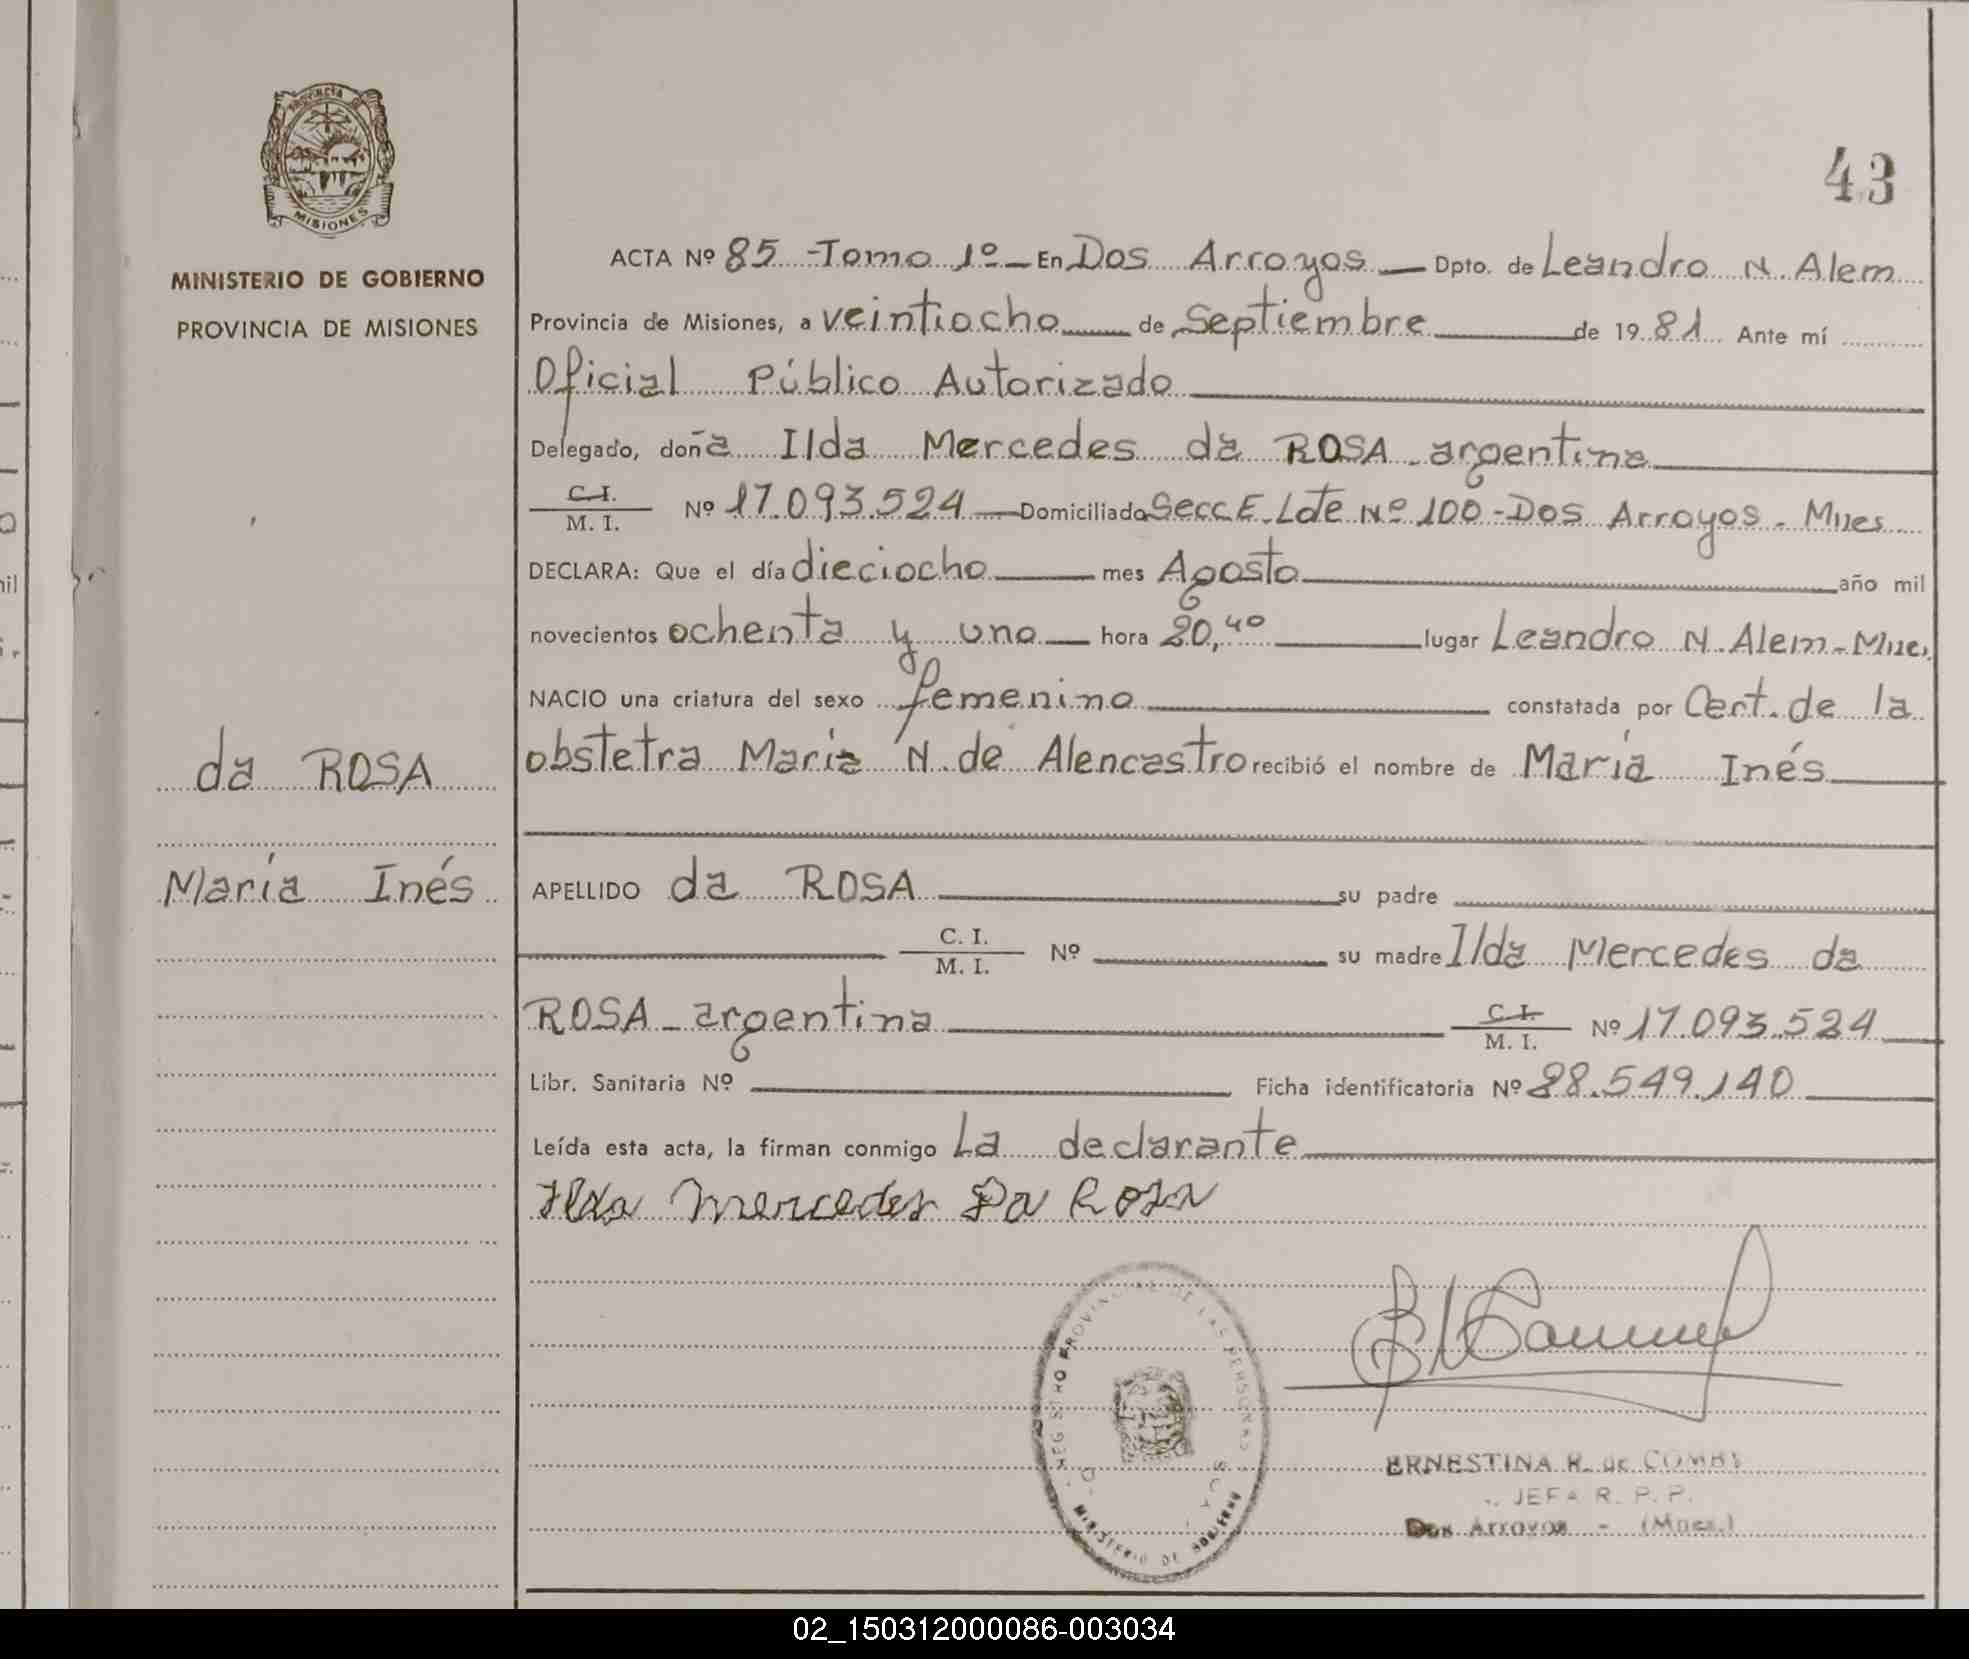 PROVINCIA DE
MISIONES
MINISTERIO DE GOBIERNO
PROVINCIA DE MISIONES
da ROSA
María Inés
43
ACTA Nº 85 - Tomo 1º - En Dos Arroyos - Dpto. de Leandro N. Alem
Provincia de Misiones, a veintiocho de Septiembre de 1981 Ante mí
Oficial Público Autorizado
Delegado, doña Ilda Mercedes da ROSA - argentina
C. I.
M. I. Nº 17.093.524 - Domiciliado Secc E. Lote Nº 100 - Dos Arroyos - Mnes
DECLARA: Que el día dieciocho mes Agosto año mil
novecientos ochenta y uno hora 20,40 lugar Leandro N. Alem - Mnes.
NACIO una criatura del sexo femenino constatada por Cert. de la
obstetra María N. de Alencastro recibió el nombre de María Inés
APELLIDO da ROSA su padre
C. I.
M. I. Nº su madre Ilda Mercedes da
ROSA - argentina C. I.
M. I. Nº 17.093.524
Libr. Sanitaria Nº Ficha identificatoria Nº 28.549.140
Leída esta acta, la firman conmigo La declarante
Ilda Mercedes Da Rosa
REGISTRO PROVINCIAL DE LAS PERSONAS
MINISTERIO DE GOBIERNO
ERNESTINA R. de
JEFA R. P. P.
Dos Arroyos - (Mnes.)
02_150312000086-003034